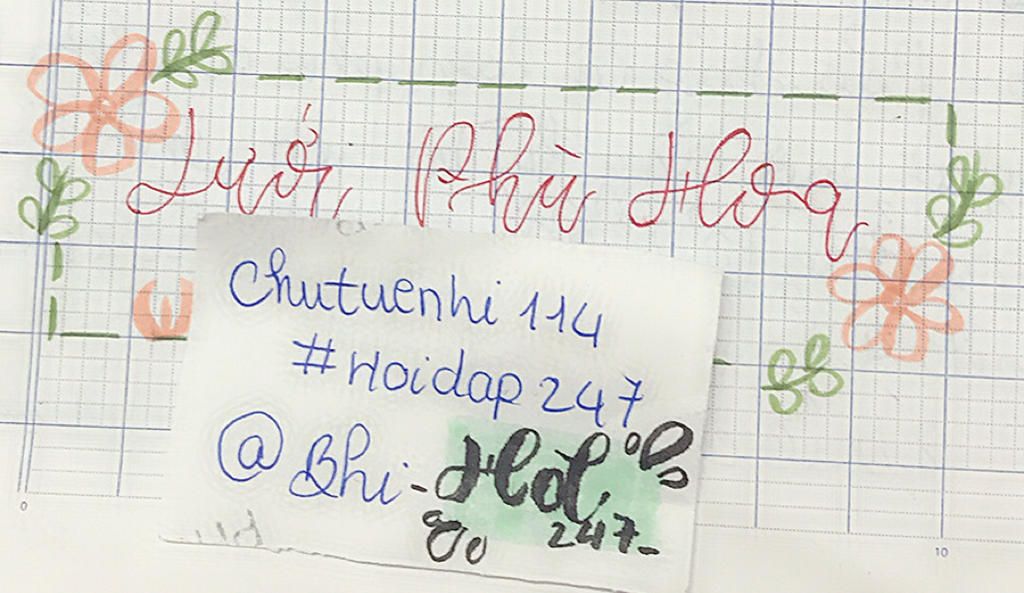 Lưới Phù Hoa
Chutuenhi 114
#Hoidap 247
@Bhi-
247-
0
10